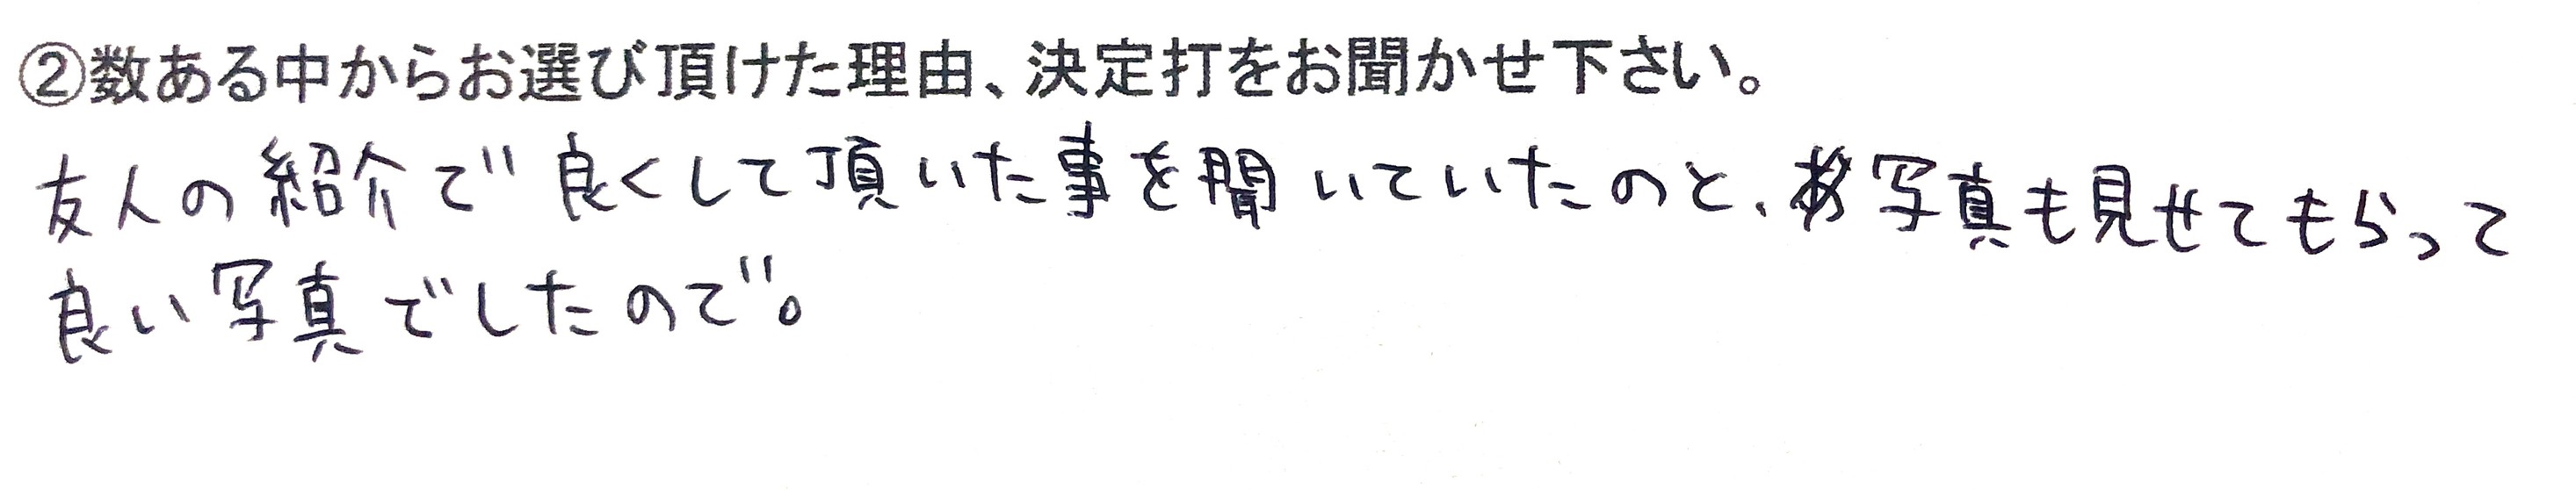 ②数ある中からお選び頂けた理由、決定打をお聞かせ下さい。
友人の紹介で良くして頂いた事を聞いていたのと、写真も見せてもらって
良い写真でしたので。